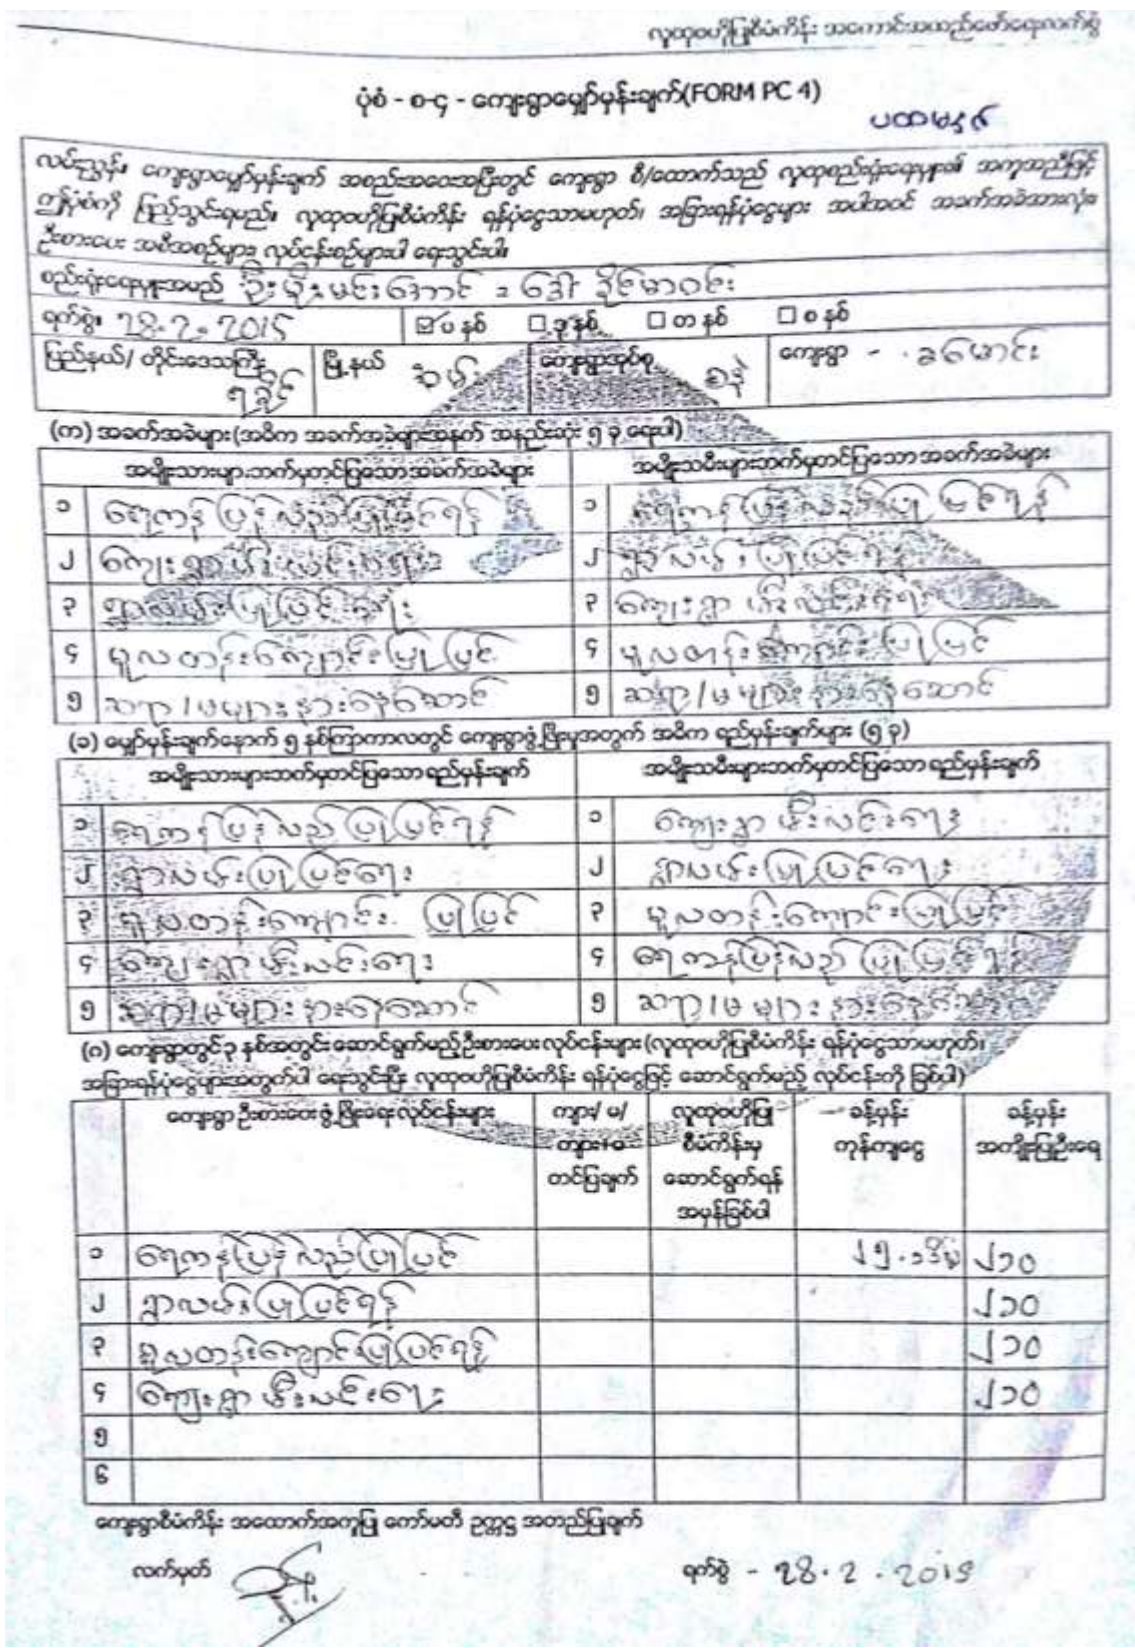 လူထုဗဟိုပြုစီမံကိန်း အကောင်အထည်ဖော်ရေးလက်စွဲ
ပုံစံ - စ-၄ - ကျေးရွာမျှော်မှန်းချက်(FORM PC 4)
ပထမနှစ်
လမ်းညွှန်။ ကျေးရွာမျှော်မှန်းချက် အစည်းအဝေးအပြီးတွင် ကျေးရွာ စီ/ထောက်သည် လူထုစည်းရုံးရေးမှူး၏ အကူအညီဖြင့်
ဤပုံစံကို ဖြည့်သွင်းရမည်။ လူထုဗဟိုပြုစီမံကိန်း ရန်ပုံငွေသာမဟုတ်၊ အခြားရန်ပုံငွေများ အပါအဝင် အခက်အခဲအားလုံး၊
ဦးစားပေး အစီအစဉ်များ၊ လုပ်ငန်းစဉ်များပါ ရေးသွင်းပါ။
စည်းရုံးရေးမှူးအမည် ဦးမိုးမင်းအောင် = ဒေါ်ခိုင်မာဝင်း
ရက်စွဲ။ 28.2.2015 ☑ ပ နှစ် ☐ ဒု နှစ် ☐ တ နှစ် ☐ စ နှစ်
ပြည်နယ်/ တိုင်းဒေသကြီး ရခိုင် မြို့နယ် အမ်း ကျေးရွာအုပ်စု စနဲ ကျေးရွာ - ခမောင်း
(က) အခက်အခဲများ(အဓိက အခက်အခဲများအနက် အနည်းဆုံး ၅ ခု ရေးပါ)
အမျိုးသားများဘက်မှတင်ပြသော အခက်အခဲများ အမျိုးသမီးများဘက်မှတင်ပြသော အခက်အခဲများ
၁ ရေကန်ပြန်လည်ပြုပြင်ရန် ၁ ရေကန်ပြန်လည်ပြုပြင်ရန်
၂ ကျေးရွာမီးလင်းရေး ၂ ရွာလမ်းပြုပြင်ရန်
၃ ရွာလမ်းပြုပြင်ရေး ၃ ကျေးရွာမီးလင်းရေး
၄ မူလတန်းကျောင်းပြုပြင် ၄ မူလတန်းကျောင်းပြုပြင်
၅ ဆရာ/မများနားနေဆောင် ၅ ဆရာ/မများနားနေဆောင်
(ခ) မျှော်မှန်းချက်နောက် ၅ နှစ်ကြာကာလတွင် ကျေးရွာဖွံ့ဖြိုးမှုအတွက် အဓိက ရည်မှန်းချက်များ (၅ ခု)
အမျိုးသားများဘက်မှတင်ပြသော ရည်မှန်းချက် အမျိုးသမီးများဘက်မှတင်ပြသော ရည်မှန်းချက်
၁ ရေကန်ပြန်လည်ပြုပြင်ရန် ၁ ကျေးရွာမီးလင်းရေး
၂ ရွာလမ်းပြုပြင်ရေး ၂ ရွာလမ်းပြုပြင်ရေး
၃ မူလတန်းကျောင်း ပြုပြင် ၃ မူလတန်းကျောင်းပြုပြင်
၄ ကျေးရွာမီးလင်းရေး ၄ ရေကန်ပြန်လည်ပြုပြင်ရန်
၅ ဆရာ/မများနားနေဆောင် ၅ ဆရာ/မများနားနေဆောင်
(ဂ) ကျေးရွာတွင် ၃ နှစ်အတွင်းဆောင်ရွက်မည့်ဦးစားပေးလုပ်ငန်းများ (လူထုဗဟိုပြုစီမံကိန်း ရန်ပုံငွေသာမဟုတ်၊
အခြားရန်ပုံငွေများအတွက်ပါ ရေးသွင်းပြီး လူထုဗဟိုပြုစီမံကိန်း ရန်ပုံငွေဖြင့် ဆောင်ရွက်မည့် လုပ်ငန်းကို ခြစ်ပါ)
ကျေးရွာဦးစားပေးဖွံ့ဖြိုးရေးလုပ်ငန်းများ ကျား/ မ/ လူထုဗဟိုပြု ခန့်မှန်း ခန့်မှန်း
ကျား+မ စီမံကိန်းမှ ကုန်ကျငွေ အကျိုးပြုဦးရေ
တင်ပြချက် ဆောင်ရွက်ရန်
အမှန်ခြစ်ပါ
၁ ရေကန်ပြန်လည်ပြုပြင် ၂၅.၁သိမ့် ၂၁၀
၂ ရွာလမ်းပြုပြင်ရန် ၂၁၀
၃ မူလတန်းကျောင်းပြုပြင်ရန် ၂၁၀
၄ ကျေးရွာမီးလင်းရေး ၂၁၀
၅
၆
ကျေးရွာစီမံကိန်း အထောက်အကူပြု ကော်မတီ ဥက္ကဋ္ဌ အတည်ပြုချက်
လက်မှတ် ရက်စွဲ - 28.2.2015